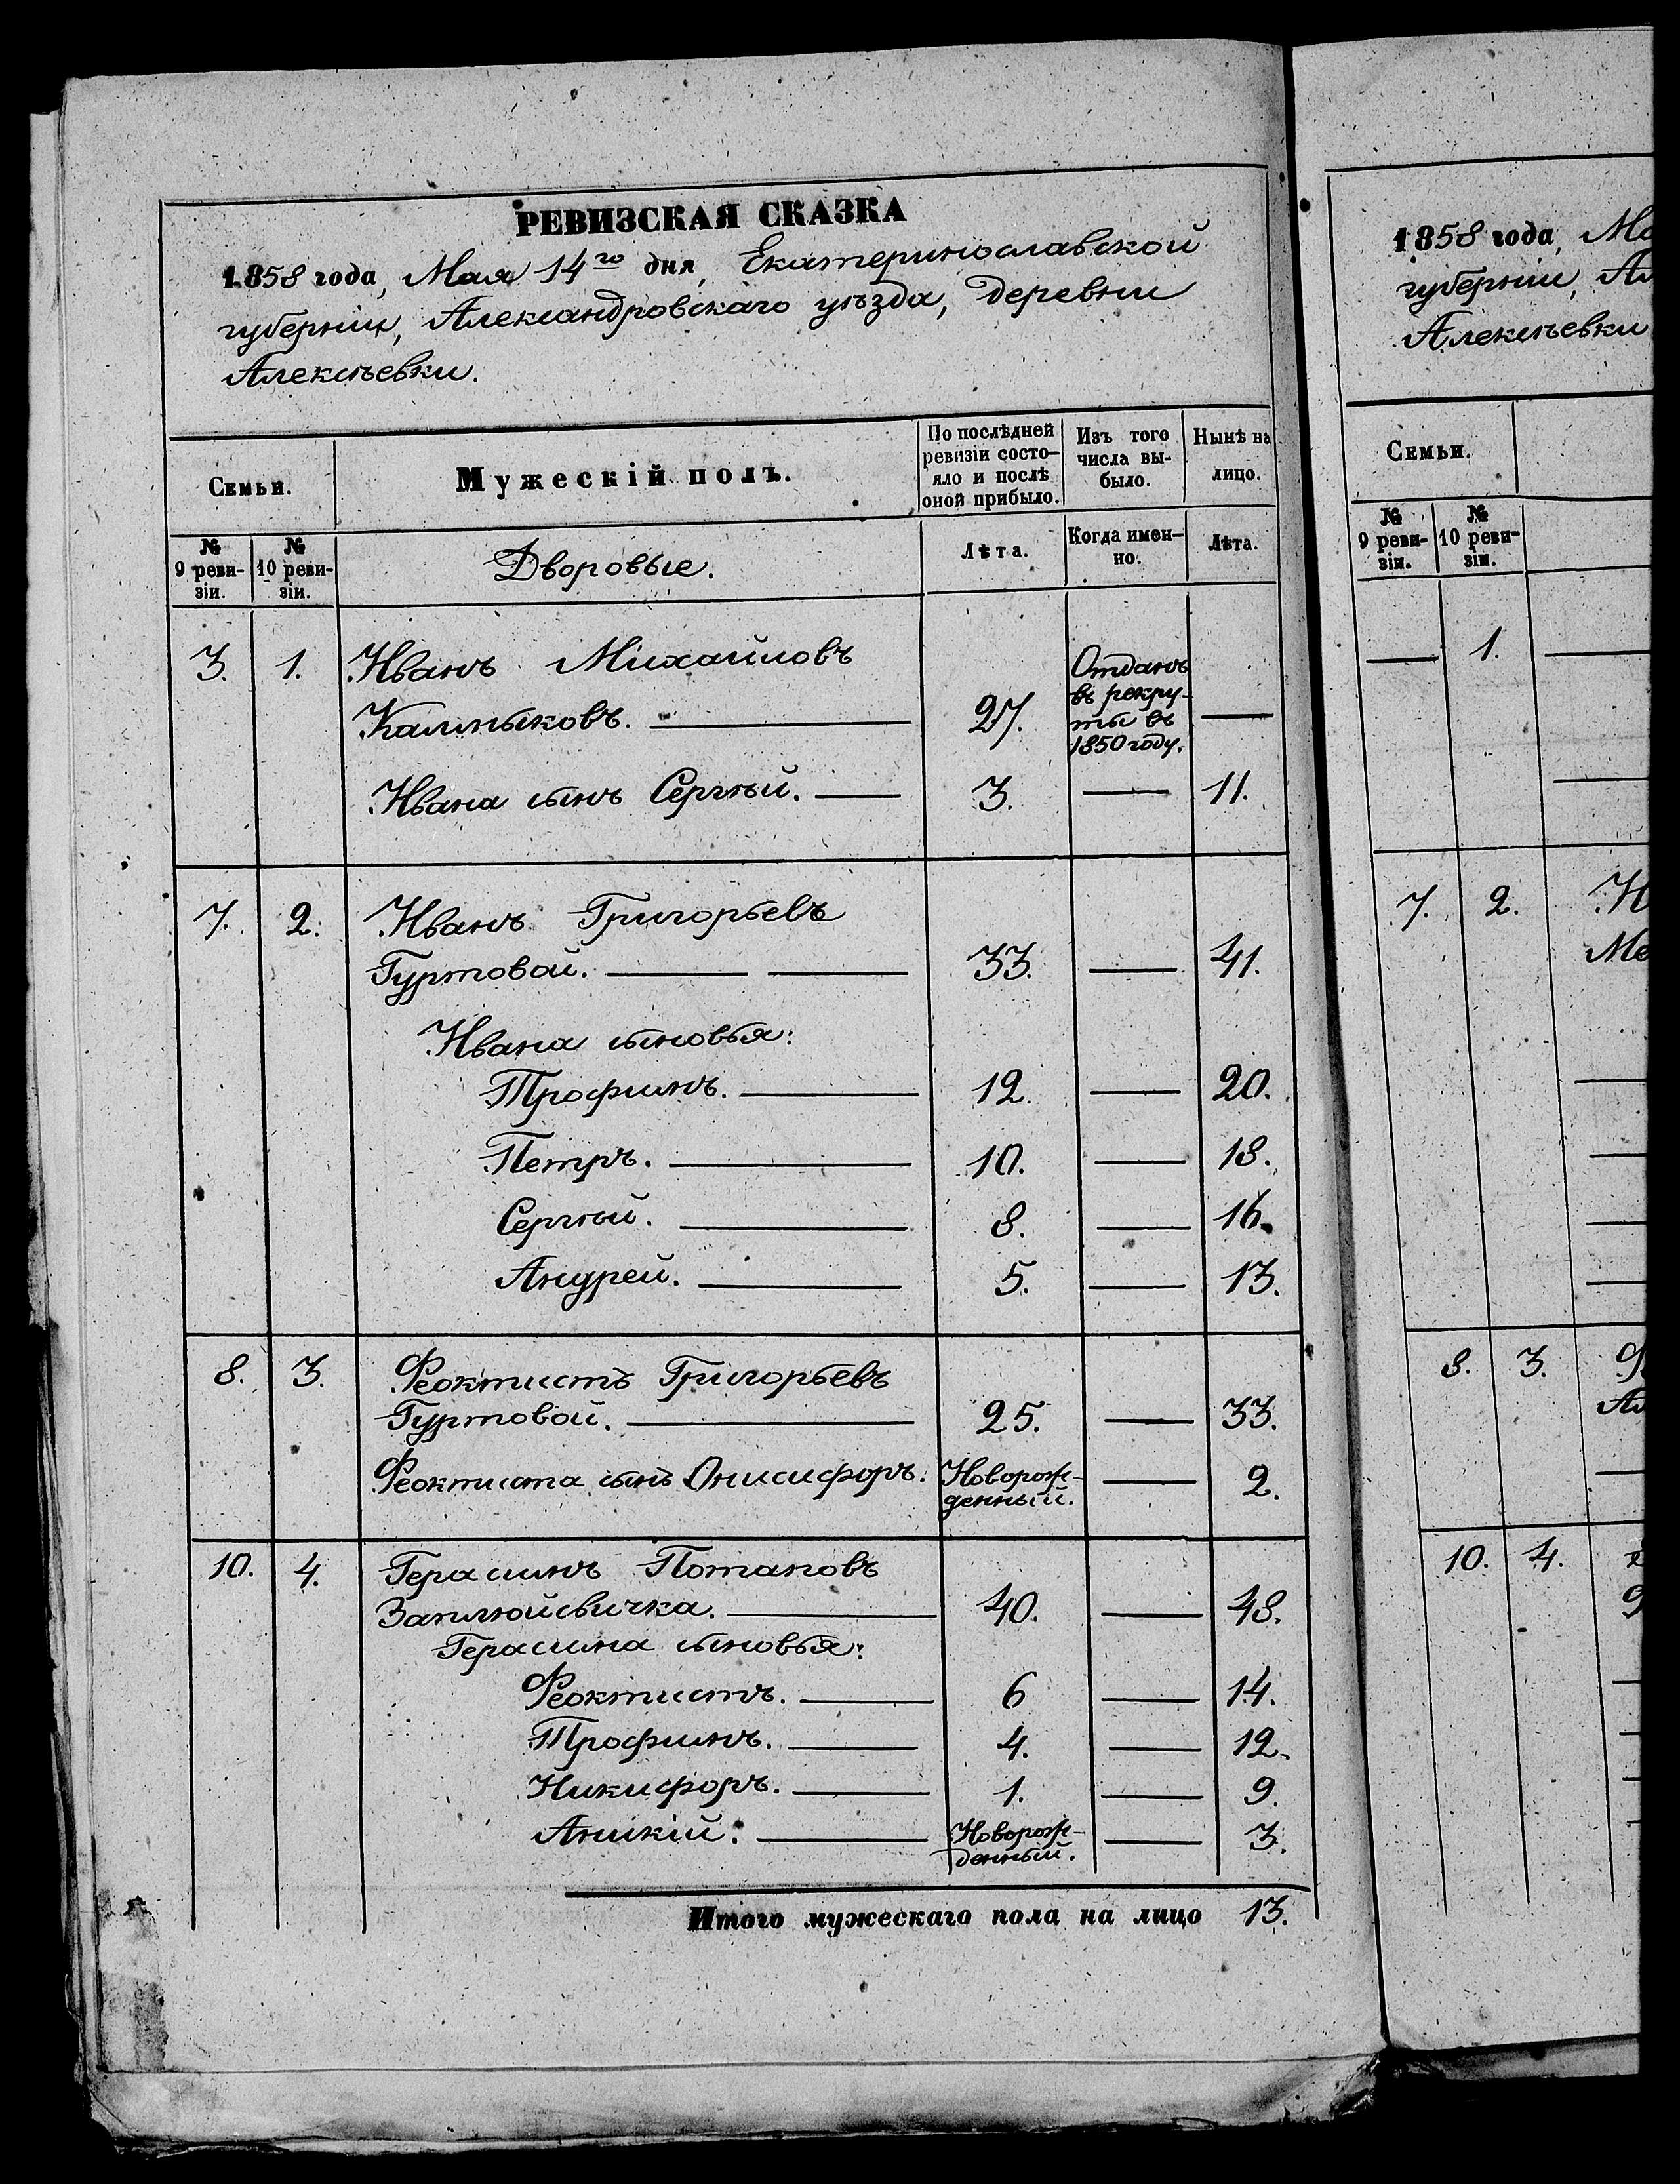 РЕВИЗСКАЯ СКАЗКА
1858 года, Мая 14го дня, Екатеринославской
губерніи, Александровскаго уѣзда, деревни
Алексѣевки.
Семьи.
Мужескій полъ.
По послѣдней ревизіи состояло и послѣ оной прибыло.
Изъ того числа выбыло.
Нынѣ на лицо.
№ 9 ревизіи.
№ 10 ревизіи.
Дворовые.
Лѣта.
Когда именно.
Лѣта.
3. 1. Иванъ Михайловъ
Калмыковъ. — 27. Отданъ въ рекруты въ 1850 году. —
Ивана сынъ Сергѣй. — 3. — 11.
7. 2. Иванъ Григорьевъ
Гуртовой. — — 33. — 41.
Ивана сыновья:
Трофимъ. — 12. — 20.
Петръ. — 10. — 18.
Сергѣй. — 8. — 16.
Андрей. — 5. — 13.
8. 3. Феоктистъ Григорьевъ
Гуртовой. — 25. — 33.
Феоктиста сынъ Онисифоръ. Новорожденный. — 2.
10. 4. Герасимъ Потаповъ
Заплюйсвичка. — 40. — 48.
Герасима сыновья:
Феоктистъ. — 6 — 14.
Трофимъ. — 4. — 12.
Никифоръ. — 1. — 9.
Аникій. — Новорожденный. — 3.
Итого мужескаго пола на лицо 13.
1858 года,
губерніи,
Алексѣевки
Семьи.
№ 9 ревизіи.
№ 10 ревизіи.
— 1. —
7. 2.
8. 3.
10. 4.